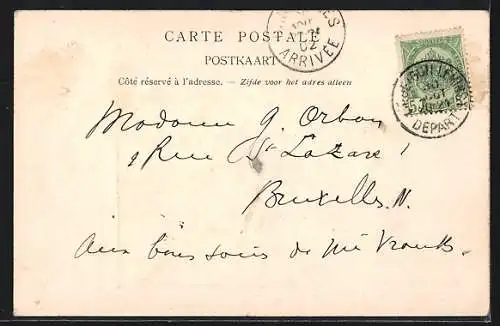 CARTE POSTALE
POSTKAART
Côté réservé à l'adresse. – Zijde voor het adres alleen
ARRIVÉE
DÉPART
Madame G. Orban
Rue St Lazare 1
Bruxelles. N.
Aux bons soins de